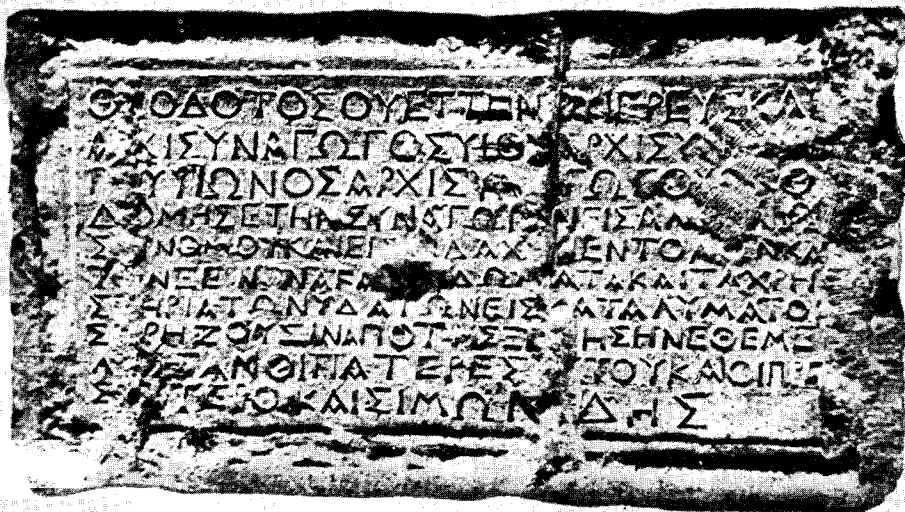 ΘΕΟΔΟΤΟΣΟΥΕΤΤΕΝΟΥΙΕΡΕΥΣΚΑΙ
ΑΡΧΙΣΥΝΑΓΩΓΟΣΥΙΟΣΑΡΧΙΣΥΝ
ΥΙΩΝΟΣΑΡΧΙΣΥΝΑΓΩΓΟΥΩΚΟ
ΔΟΜΗΣΕΤΗΝΣΥΝΑΓΩΓΗΝΕΙΣΑΝ
ΙΝΝΟΜΟΥΚΑΙΕΙΣΔΙΔΑΧΗΝΕΝΤΟΛΩΝΚΑΙ
ΤΟΝΞΕΝΩΝΑΚΑΔΩΜΑΤΑΚΑΙΤΑΧΡΗ
ΣΤΗΡΙΑΤΩΝΥΔΑΤΩΝΕΙΣΚΑΤΑΛΥΜΑΤΟΙ
ΣΧΡΗΖΟΥΣΙΝΑΠΟΤΗΣΞΕΝΗΣΗΝΕΘΕΜΕ
ΛΙΩΣΑΝΟΙΠΑΤΕΡΕΣΑΥΤΟΥΚΑΙΟΙΠΡΕ
ΣΒΥΤΕΡΟΙΚΑΙΣΙΜΩΝΙΔΗΣ